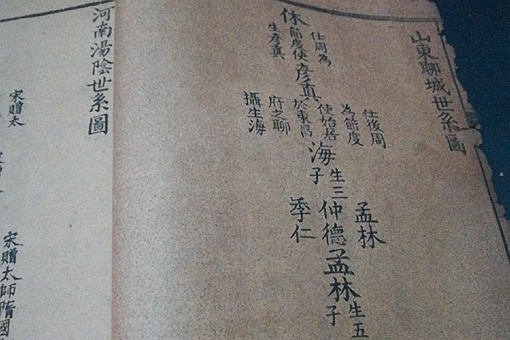 山東聊城世系圖
休仕周為節度使生彥真
彥真任後周為節度使始居於東昌府之聊攝生海
海生三子
孟林
仲德
季仁
孟林生五子
河南湯陰世系圖
宋贈太
宋贈太師隋國